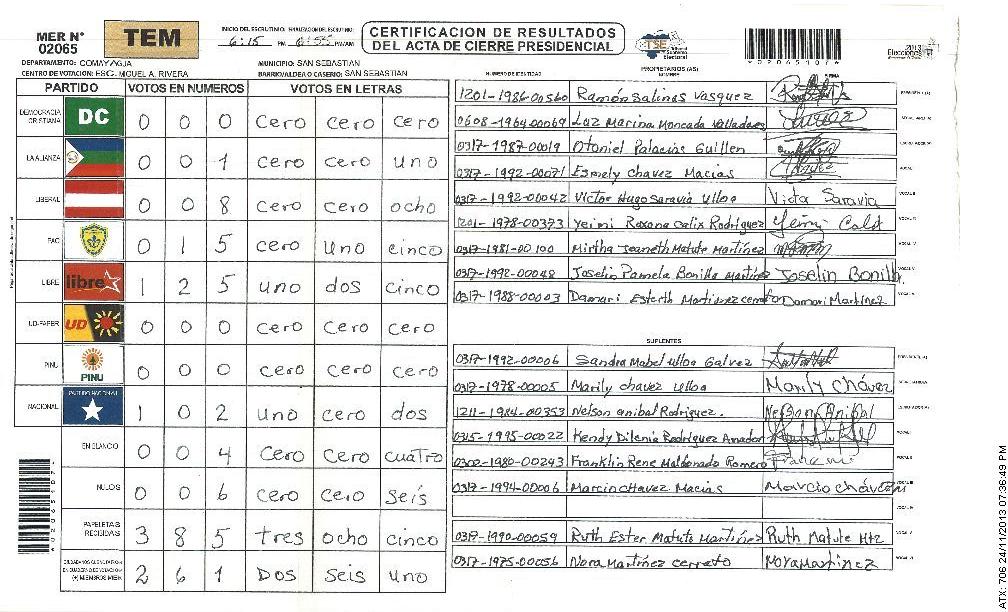 MER N° 02065
TEM
INICIO DEL ESCRUTINIO: FINALIZACION DEL ESCRUTINIO:
6:15 PM 6:55 PM/AM
CERTIFICACION DE RESULTADOS
DEL ACTA DE CIERRE PRESIDENCIAL
TSE Tribunal Supremo Electoral
2013
Elecciones
DEPARTAMENTO: COMAYAGUA
MUNICIPIO: SAN SEBASTIAN
CENTRO DE VOTACION: ESC. MIGUEL A. RIVERA
BARRIO/ALDEA O CASERIO: SAN SEBASTIAN
PARTIDO VOTOS EN NUMEROS VOTOS EN LETRAS
DEMOCRACIA CRISTIANA DC 0 0 0 cero cero cero
LA ALIANZA 0 0 1 cero cero uno
LIBERAL 0 0 8 cero cero ocho
PAC 0 1 5 cero uno cinco
LIBRE libre 1 2 5 uno dos cinco
UD-FAPER UD 0 0 0 cero cero cero
PINU PINU 0 0 0 cero cero cero
NACIONAL PARTIDO NACIONAL 1 0 2 uno cero dos
EN BLANCO 0 0 4 cero cero cuatro
NULOS 0 0 6 cero cero seis
PAPELETAS RECIBIDAS 3 8 5 tres ocho cinco
2 6 1 Dos seis uno
NUMERO DE IDENTIDAD PROPIETARIOS (AS) NOMBRE FIRMA
1201-1986-00560 Ramón Salinas Vasquez
0608-1964-00069 Luz Marina Moncada Valladares
0317-1987-0019 Otoniel Palacias Guillen
0317-1992-00071 Esmely Chavez Macias
0317-1992-00042 Victor Hugo Saravia Ulloa
1201-1978-00373 Yeimi Roxana Calix Rodriguez
0317-1981-00100 Mirtha Jeaneth Matute Martínez
0317-1992-00048 Joselin Pamela Bonilla Martinez Joselin Bonilla
0317-1988-00003 Damari Martinez
SUPLENTES
0317-1992-00006 Sandra Mabel Ulloa Galvez
0317-1978-00005 Marily Chavez Ulloa Marily Chávez
1211-1984-00353 Nelson anibal Rodriguez. Nelson Anibal
0315-1995-00022 Kendy Dilenia Rodríguez Amador
0302-1980-00243 Franklin Rene Maldonado Romero
0317-1994-00006 Marcio Chavez Macias Marcio Chávez
0317-1990-00059 Ruth Ester Matute Martínez Ruth Matute Mtz
0317-1975-00056 Nora Martínez cerrato Nora Martinez
ATX: 706 24/11/2013 07:36:49 PM